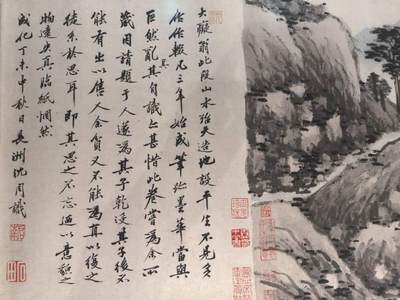 大癡翁此段山水殆天造地設平生不見多
作作輟凡三年始成筆跡墨華當與
巨然亂真其自識亦甚惜此卷嘗為余所
藏因請題于人遂為其子乾沒其子後不
能有出以售人余貧又不能為直以復之
徒系於思耳即其思之不忘迺以意貌之
物遠失真臨紙惘然
成化丁未中秋日長洲沈周識